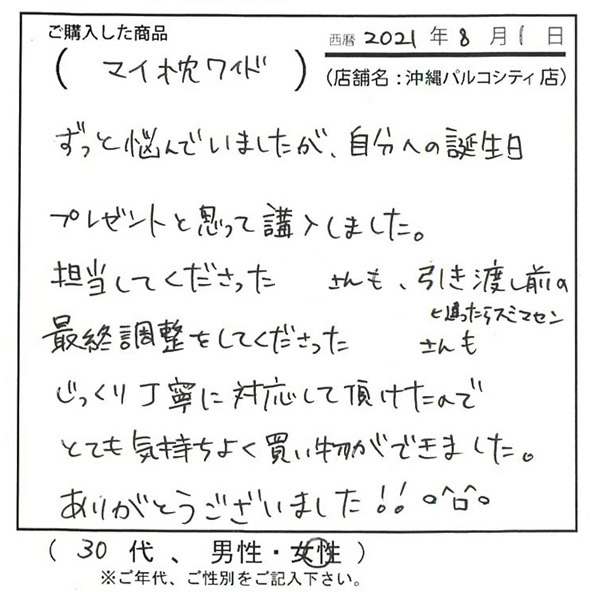 ご購入した商品
西暦 2021 年 8 月 1 日
( マイ枕ワイド )
(店舗名：沖縄パルコシティ店)
ずっと悩んでいましたが、自分への誕生日
プレゼントと思って講入しました。
担当してくださった さんも、引き渡し前の
最終調整をしてくださった さんも
ヒ違ったらスミマセン
じっくり丁寧に対応して頂けたので
とても気持ちよく買い物ができました。
ありがとうございました!! o^ロ^o
( 30 代、男性・女性 )
※ご年代、ご性別をご記入下さい。